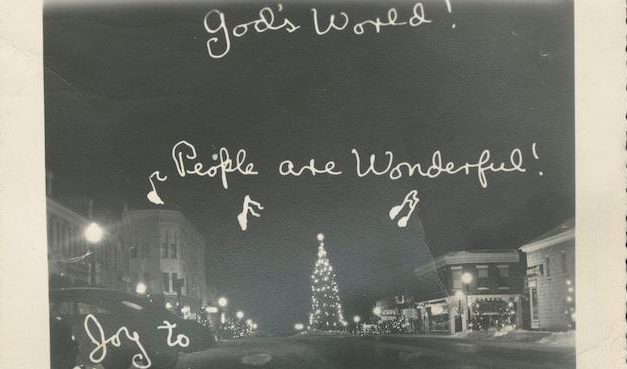 God's World!
People are Wonderful!
Joy to